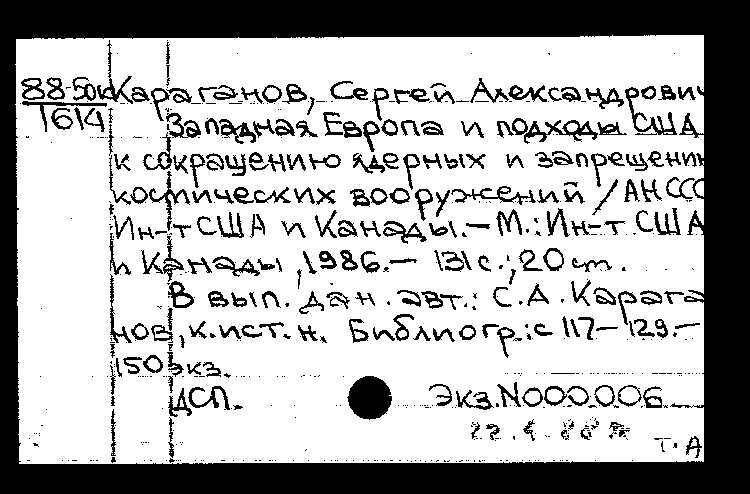 88-50к Караганов, Сергей Александрович
1614 Западная Европа и подходы США
к сокращению ядерных и запрещени
космических вооружений / АН ССС
Ин-т США и Канады. — М.: Ин-т США
и Канады, 1986. — 131 с.; 20 ст.
В вып. дан. авт.: С.А. Карага
нов, к. ист. н. Библиогр.: с 117-129. —
150 экз.
ДСП. Экз. N000006
22.4.88
Т. А